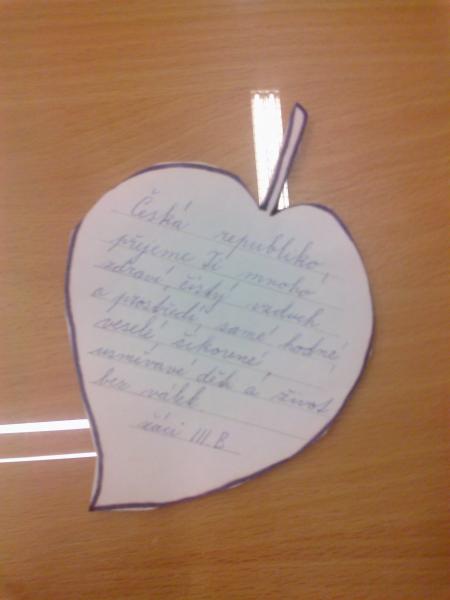 Česká republiko,
přejeme Ti mnoho
zdraví, čistý vzduch
a prostředí, samé hodné,
veselé, šikovné,
usměvavé děti a život
bez válek.
žáci III. B